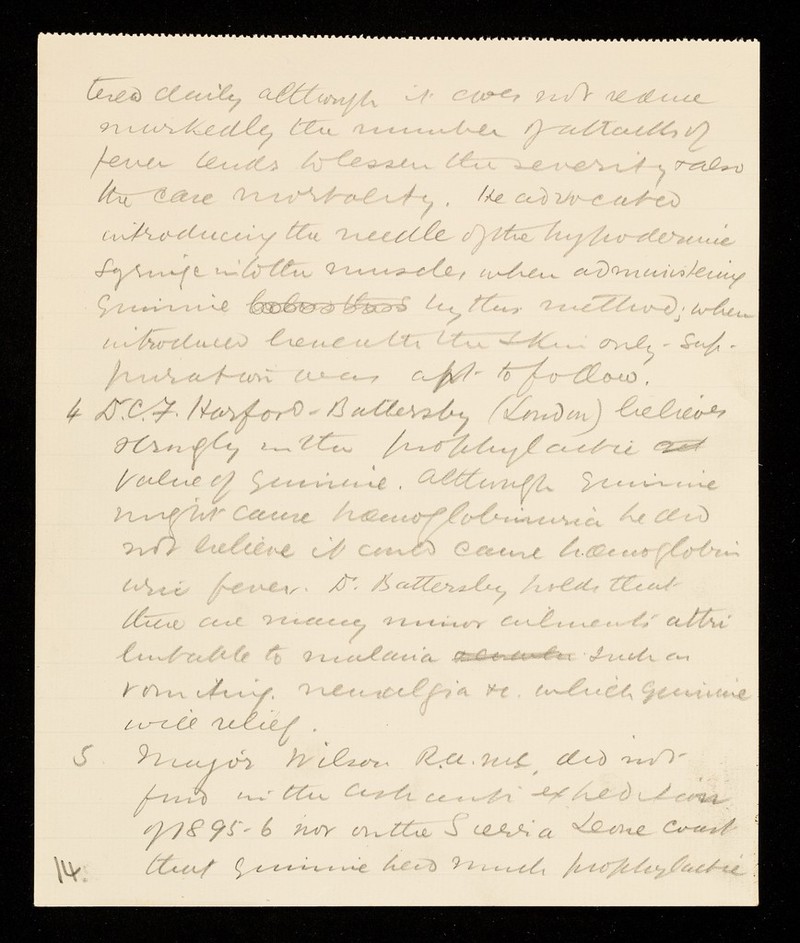 tered daily although it does not reduce
markedly the number of attacks of
fever tends to lessen the severity & also
the case mortality. He advocated
introducing the needle of the hypodermic
syringe into the muscles, when administering
quinine by this method; when
introduced beneath the skin only - sup-
puration was apt to follow.
4 D. C. F. Harford-Battersby (London) believes
strongly in the prophylactic
value of quinine. Although quinine
might cause hæmoglobinuria he did
not believe it could cause hæmoglobin
uric fever. D. Battersby holds that
there are many minor ailments attri
butable to malaria such as
vomiting. neuralgia &c. which quinine
will relief.
5 Major Wilson R.A.M.C. did not
find in the Ashanti expedition
of 1895-6 nor on the Sierra Leone coast
14. that quinine had much prophylactic